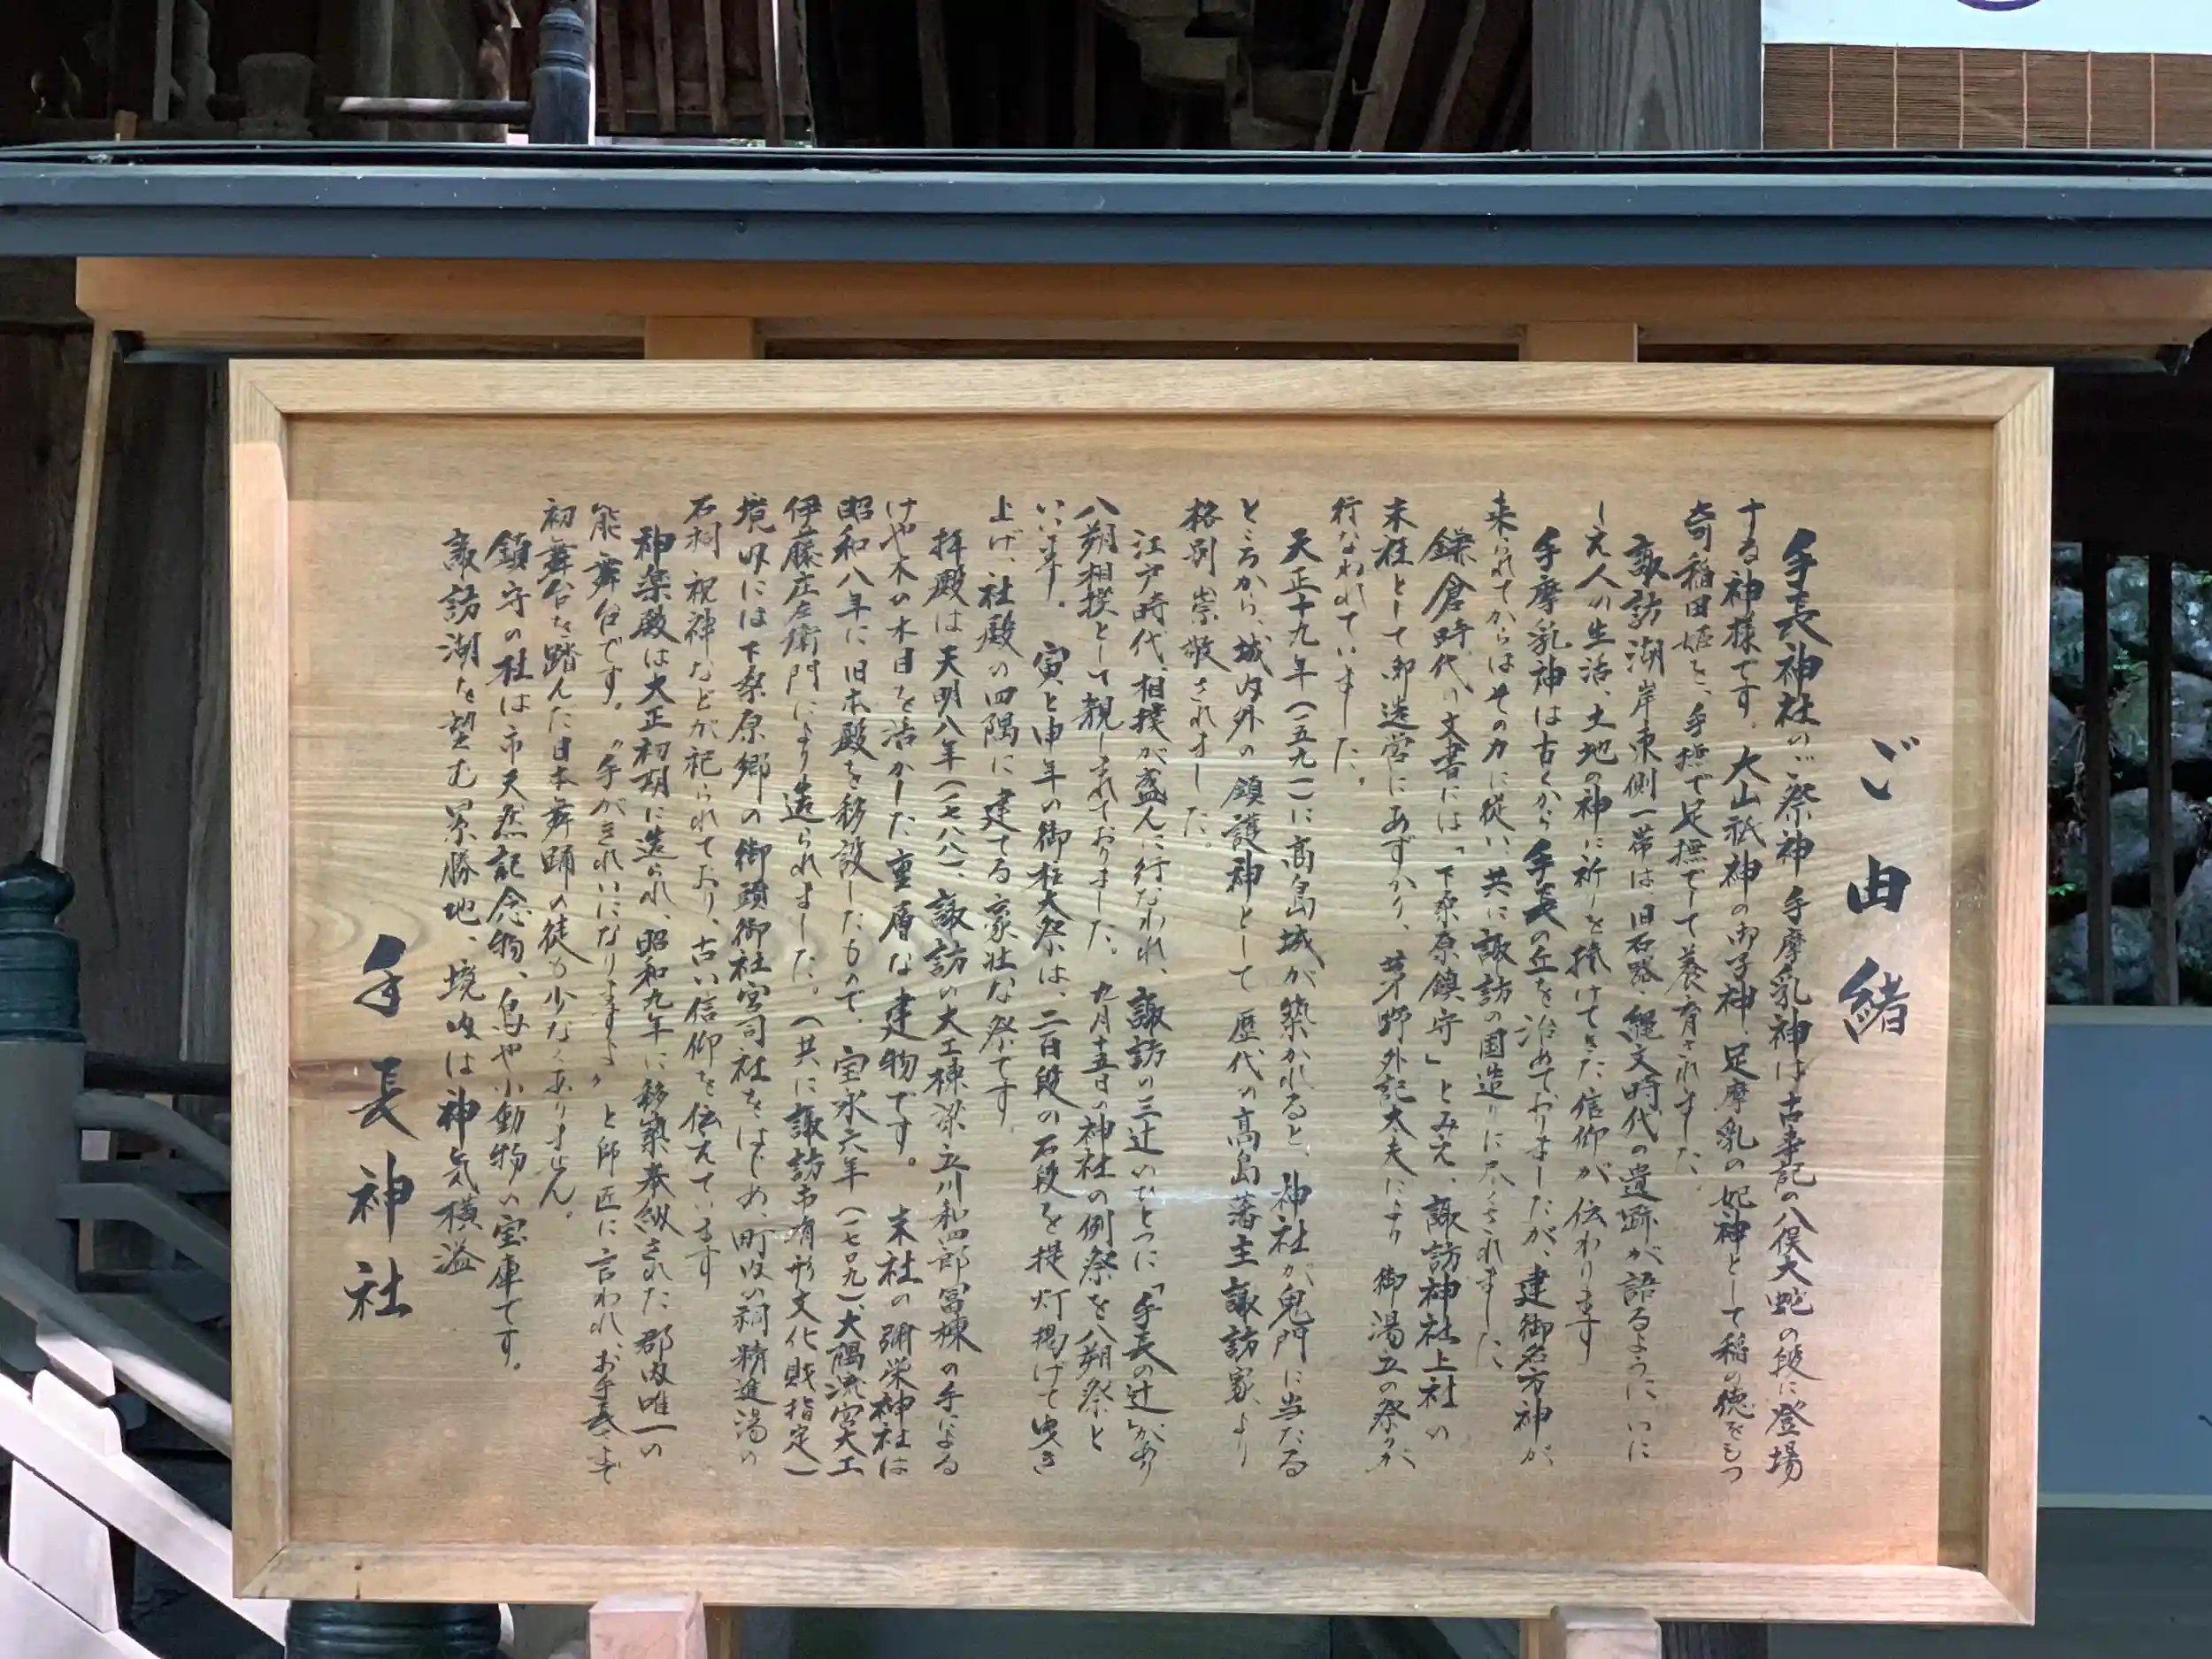 ご由緒
手長神社のご祭神 手摩乳神は古事記の八俣大蛇の段に登場
する神様です。大山祇神の御子神、足摩乳の妃神として稲の徳をもつ
奇稲田姫を、手撫で足撫でして養育されました。
諏訪湖岸東側一帯は旧石器・縄文時代の遺跡が語るように、いに
しえ人の生活、土地の神に祈りを捧げてきた信仰が伝わります
手摩乳神は古くから手長の丘を治めておりましたが、建御名方神が
来られてからはその力に従い、共に諏訪の国造りに尽くされました
鎌倉時代の文書には「下桑原鎮守」とみえ、諏訪神社上社の
末社として御造営にあずかり、茅野外記太夫により御湯立の祭りが
行なわれていました。
天正十九年(一五九一)に高島城が築かれると、神社が鬼門に当たる
ところから、城内外の鎮護神として歴代の高島藩主諏訪家より
格別崇敬されました。
江戸時代、相撲が盛んに行なわれ、諏訪の三辻のひとつに「手長の辻」があり
八朔相撲として親しまれておりました。九月十五日の神社の例祭を八朔祭と
いいます。 寅と申年の御柱大祭は、二百段の石段を提灯掲げて曳き
上げ、社殿の四隅に建てる豪壮な祭です。
拝殿は天明八年(一七八八)、諏訪の大工棟梁立川和四郎冨棟の手による
けや木の木目を活かした重層な建物です。 末社の彌栄神社は
昭和八年に旧本殿を移設したもので、宝永六年(一七〇九)、大隅流宮大工
伊藤庄左衛門により造られました。(共に諏訪市有形文化財指定)
境内には下桑原郷の御頭御社宮司社をはじめ、町内の祠、精進湯の
石祠 祝神などが祀られており、古い信仰を伝えています
神楽殿は大正初期に造られ、昭和九年に移築奉納された郡内唯一の
能舞台です。“手がきれいになりますよ”と師匠に言われ、お手長さまで
初舞台を踏んだ日本舞踊の徒も少なくありません。
鎮守の杜は市天然記念物、鳥や小動物の宝庫です。
諏訪湖を望む景勝地、境内は神気横溢
手長神社